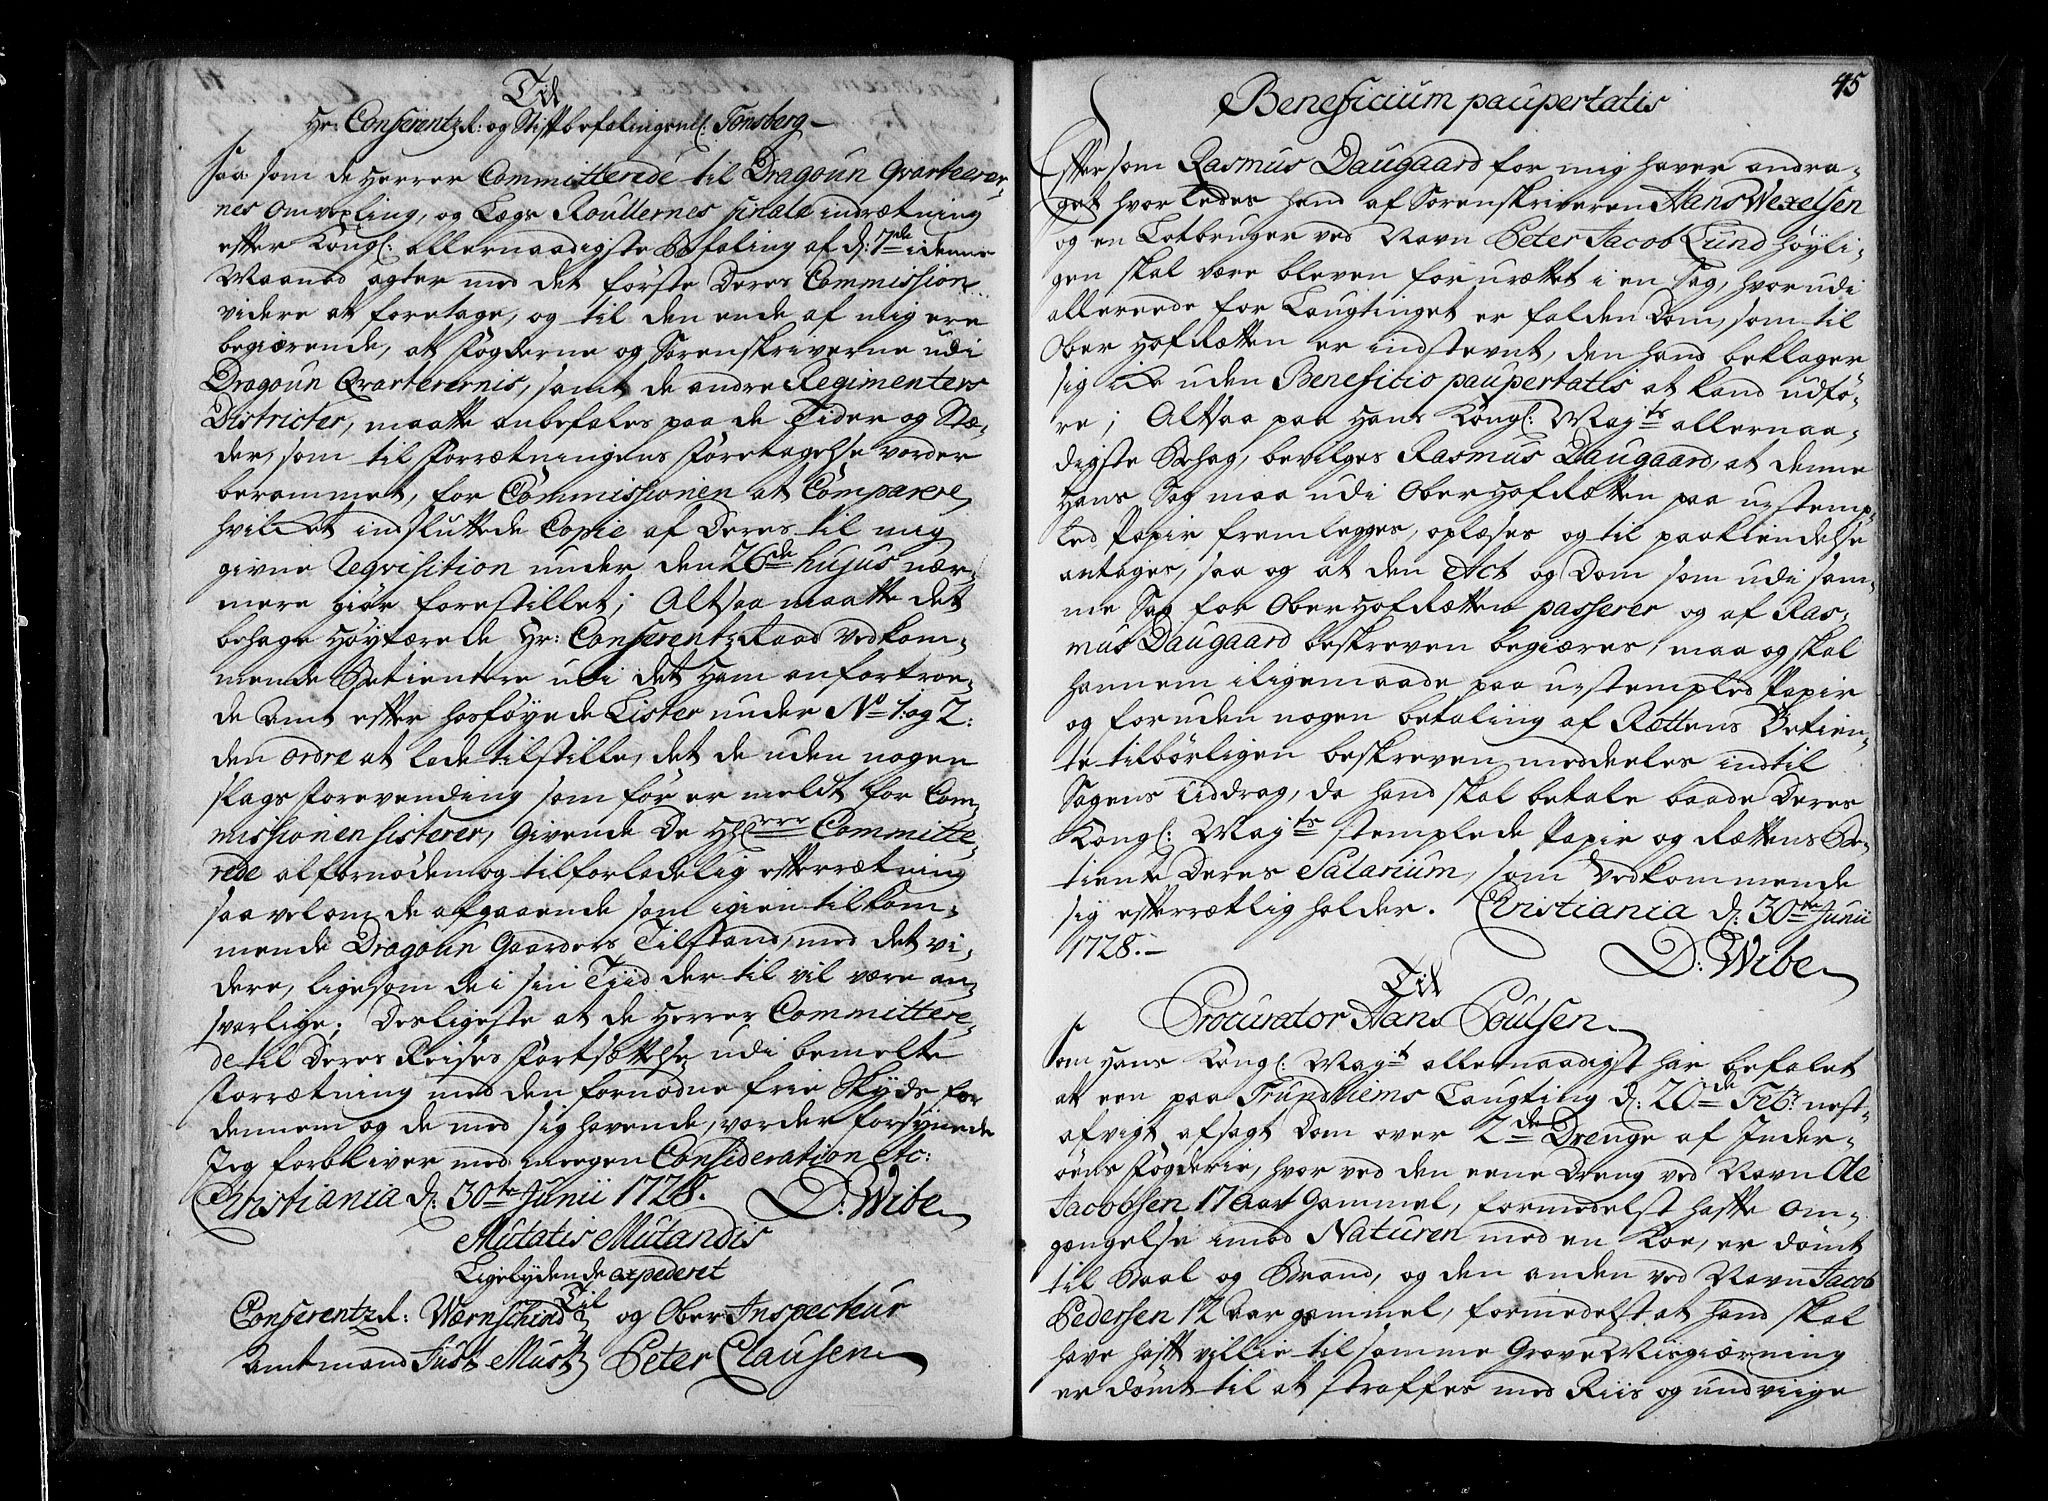 Til
Hr: Conferentzr: og Stiftbefalingsml: Tonsberg
Saa som de Herrer Committerede til Dragoun Qvarteerer-
nes omvexling, og Lægs Roullernes finale indrætning
efter Kongl: allernaadigste Befaling af d: 7de i denne
Maaned agter med det første Deres Commission
videre at foretage, og til den ende af mig ere
begiærende, at fogderne og Sorenskriverne udi
Dragoun Qvarterernis, samt de andre Regimenters
Districter, maatte anbefales paa de Tider og Stæ-
der, som til forrætningens foretagelse vorder
berammet, for Commissionen at Comparere,
hvilket indsluttede Copie af Deres til mig
givne Reqvisition under den 26de hujus nær-
mere giør forestillet; Altsaa maatte det
behage Høytærede Hr: Conferentz Raad vedkom-
mende Betientere udi det Ham anfortroe-
de Amt efter hosføyede Lister under No 1. og 2:
den ordre at lade tilstille, det de uden nogen
slags forevending som før er meldt for Com-
missionen sisterer, givende De HHerrer Committe-
rede alfornøden og tilforladelig efterrætning
saavel om de afgaaende som igien tilkom-
mende Dragoun Gaarders Tilstand, med det vi-
dere, ligesom de i sin Tiid der til vil være an-
svarlige; Desligeste at de Herrer Committere-
de til Deres Reises fortsættelse udi bemelte
forrætning med den fornødne frie Skyds for
dennem og de med sig havende, vorder forsynede
Jeg forbliver med megen Consideration etc:
Christiania d: 30te Junii 1728. D: Wibe
Mutatis Mutandis
Ligelydende expederet
Til
Conferentzr: Wærnschiold og Ober Inspecteur
Amtmand Just Must Peter Clausen
45
Beneficium paupertatis
Eftersom Rasmus Daugaard for mig haver andra-
get hvorledes hand af Sorenskriveren Hans Wexelsen
og en Lotbruger ved Navn Peter Jacob Lund høyli-
gen skal være bleven forurættet i en sag, hvorudi
allereede for Laugtinget er falden Dom, som til
Ober HofRætten er indstevnt, den hand beklager
sig icke uden Beneficio paupertatis at kand udfø-
re; Altsaa paa Hans Kongl: Mayts allernaa-
digste Behag, bevilges Rasmus Daugaard, at denne
Hans Sag maa udi OberHofRætten paa ustemp-
led Papir fremlegges, oplæses og til paakiendelse
antages, saa og at den Act og Dom som udi sam-
me Sag for OberHofRætten passerer og af Ras-
mus Daugaard beskreven begiæres, maa og skal
hannem iligemaade paa ustempled Papir
og foruden nogen betaling af Rættens Betien-
te tilbørligen beskreven meddeeles indtil
Sagens Uddrag, da hand skal betale baade Deres
Kongl: Mayts stemplede Papir og Rættens Be-
tiente Deres Salarium, som Vedkommende
sig efterrætlig holder. Christiania d: 30te Junii
1728.
D: Wibe
Til
Procurator Hans Poulsen
Som Hans Kongl: Mayt allernaadigst har befalet
at een paa Trundhiems Laugting d: 20de Febr: nest-
afvigt afsagt Dom over 2de Drenge af Inder-
øens fogderie, hvorved den eene Dreng ved Navn Ole
Jacobsen 17 Aar Gammel, formedelst hafte om-
gængelse imod Naturen med en Koe, er dømt
til Baal og Brand, og den anden ved Navn Jacob
Pedersen 12 Aar gammel, formedelst at hand skal
have haft villie til samme Grove Misgiærning
er dømt til at straffes med Riis og undviige